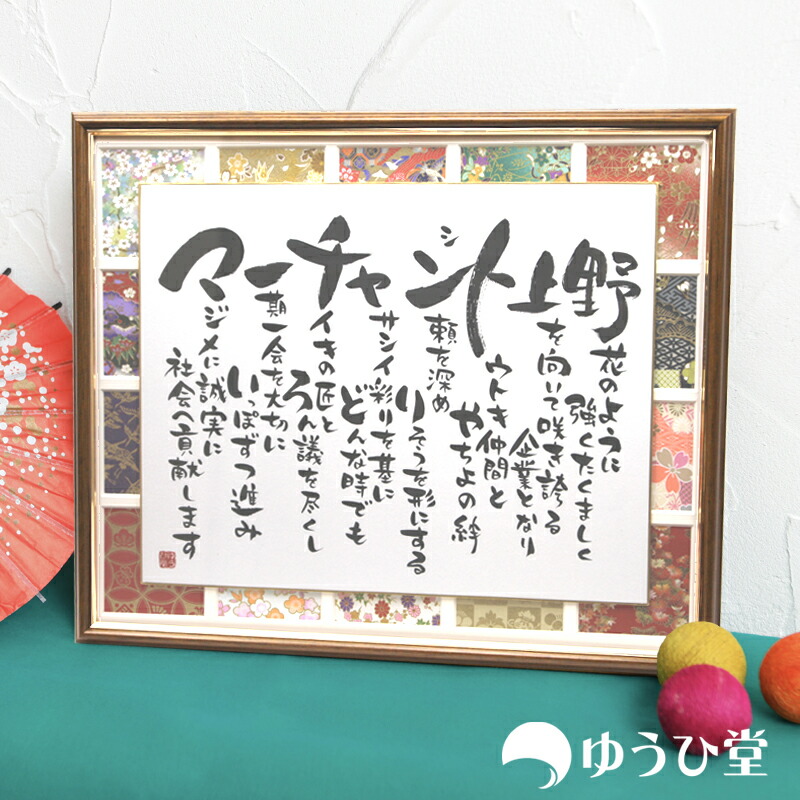 野花のように
強くたくましく
上を向いて咲き誇る
企業となり
トウトキ仲間と
やちよの絆
シン頼を深め
りそうを形にする
ャサシイ彩りを基に
どんな時でも
チイキの匠と
ろん議を尽くし
ー期一会を大切に
いっぽずつ進み
マジメに誠実に
社会へ貢献します
ゆうひ堂